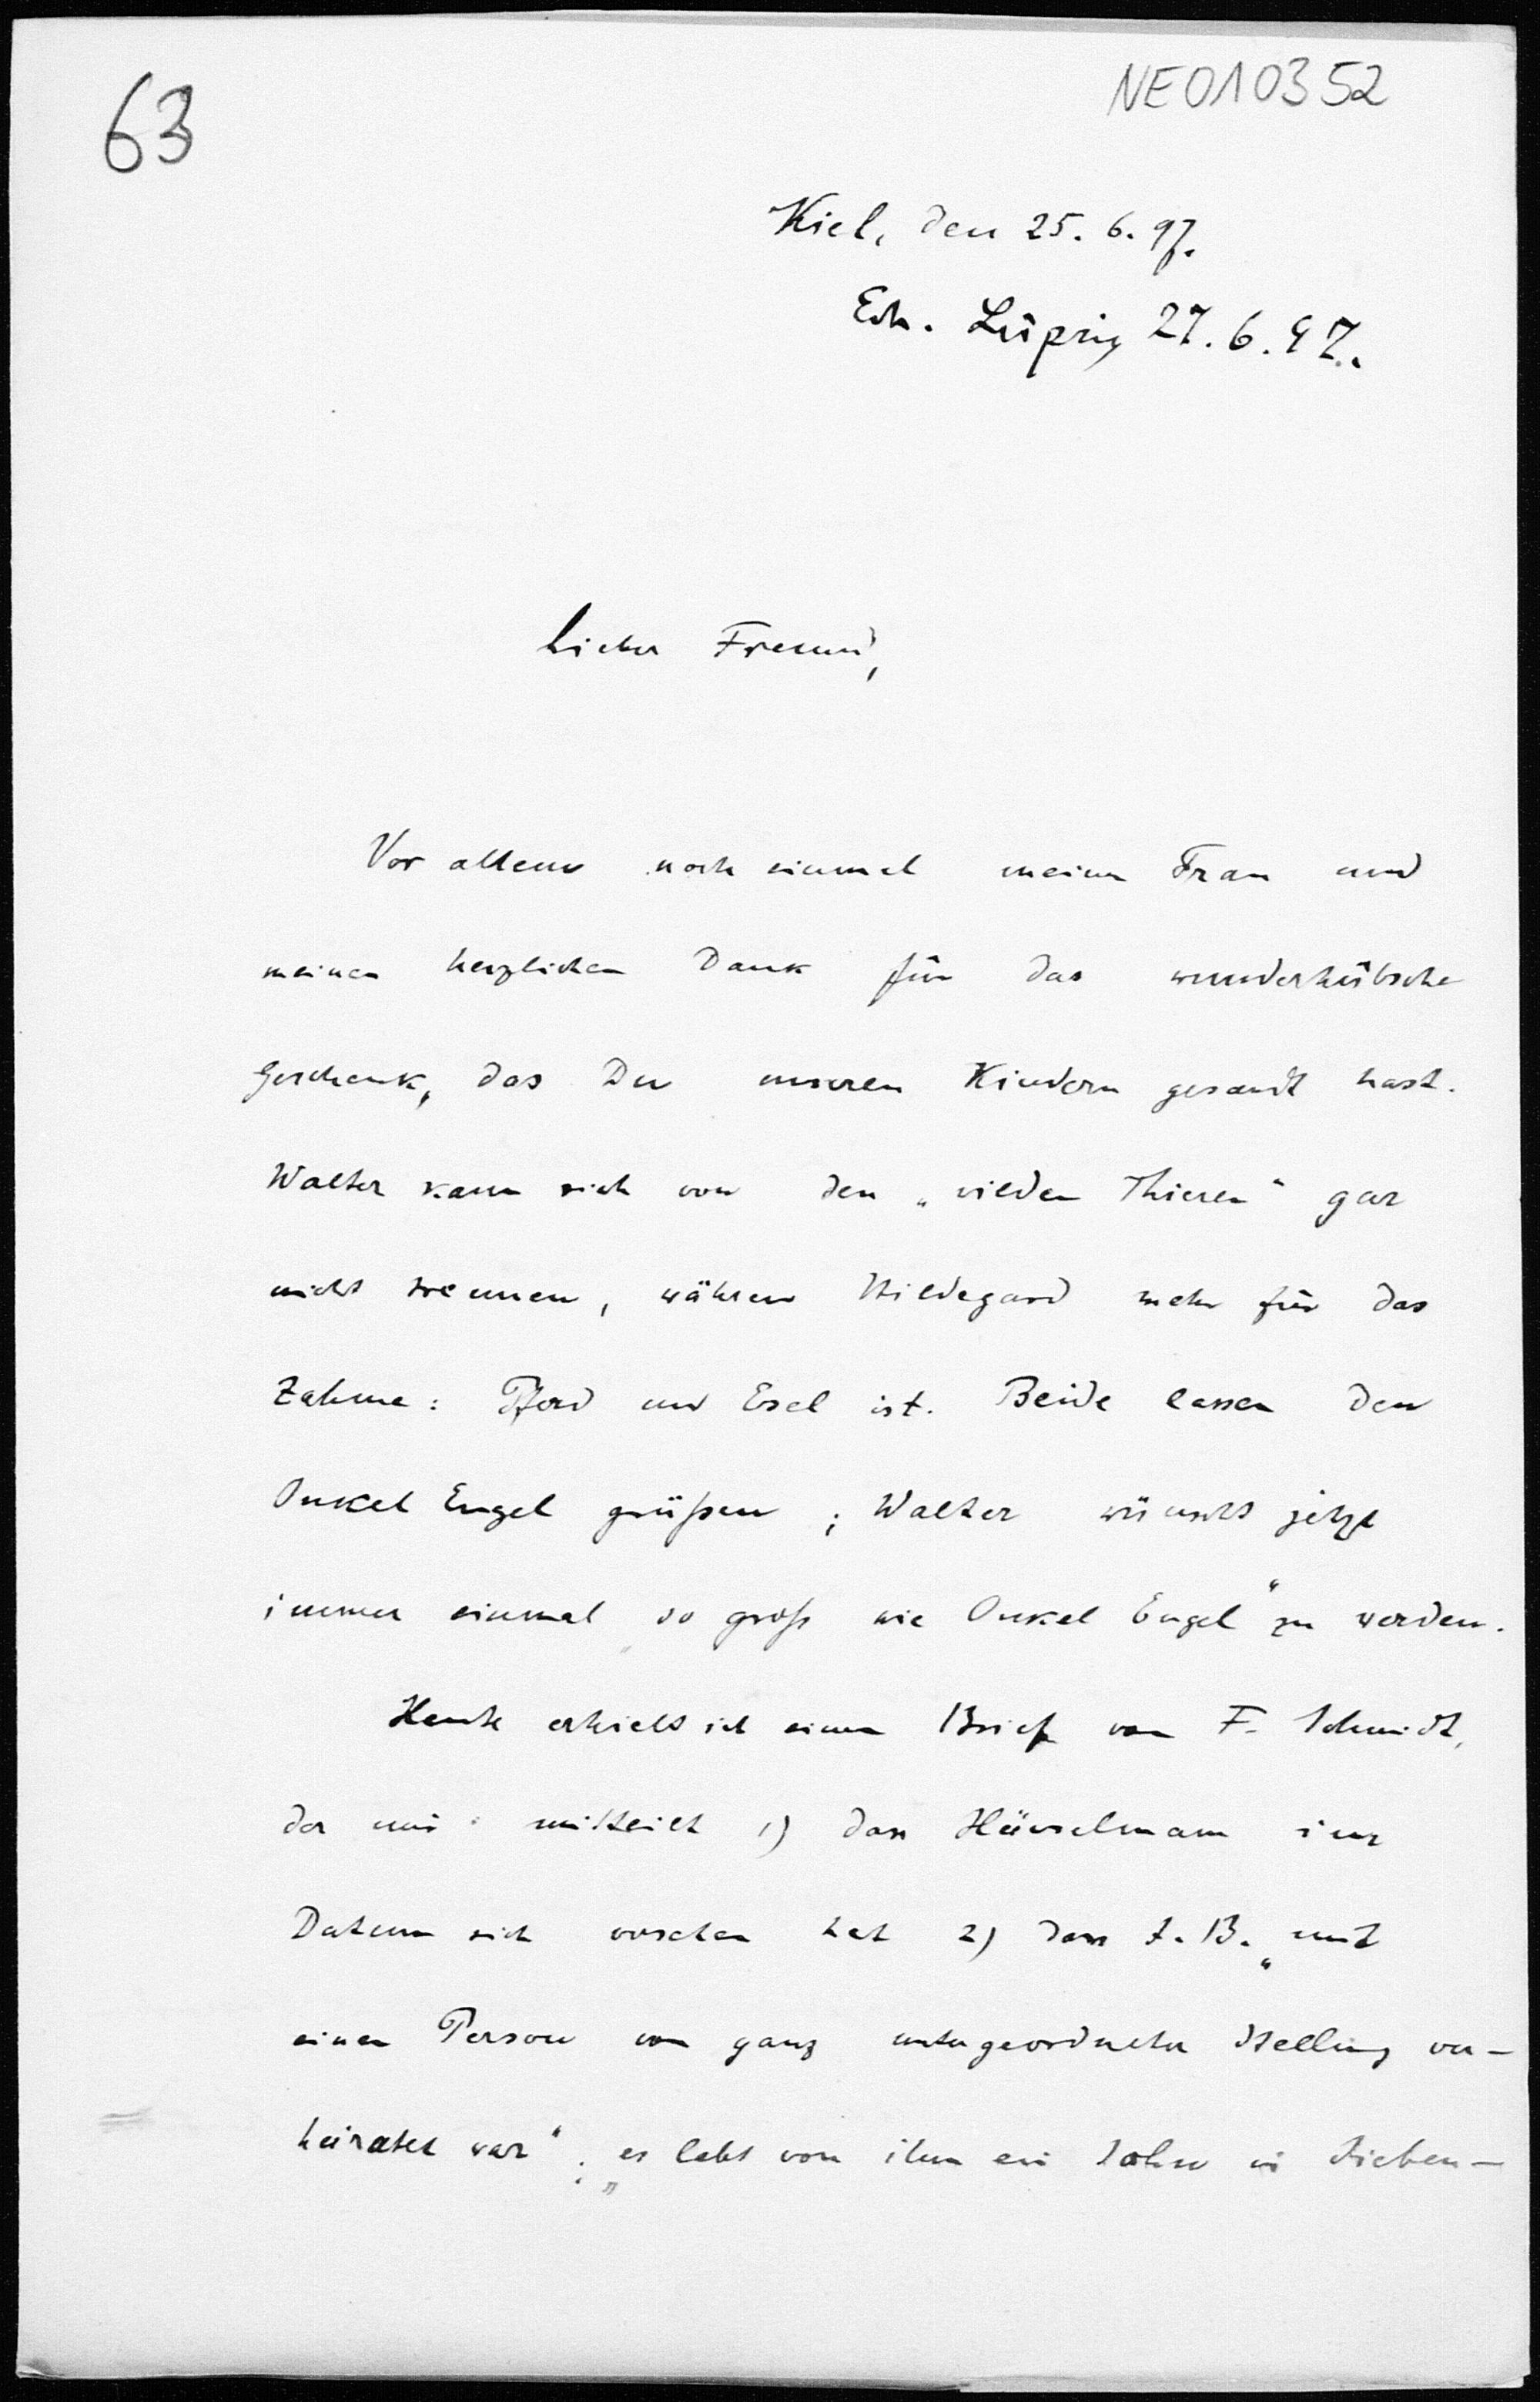 63
NE010352
Kiel, den 25. 6. 97.
Erh. Leipzig 27. 6. 97.
Lieber Freund,
Vor allem noch einmal meiner Frau und
meinen herzlichen Dank für das wunderhübsche
Geschenk, das Du unseren Kindern gesandt hast.
Walter kann sich von den „wilden Thieren“ gar
nicht trennen, während Hildegard mehr für das
Zahme: Pferd und Esel ist. Beide lassen den
Onkel Engel grüßen; Walter wünscht jetzt
immer einmal „so groß wie Onkel Engel“ zu werden.
Heute erhielt ich einen Brief von F. Schmidt,
der mir mitteilt 1) dass Hänselmann im
Datum sich versehen hat 2) dass J. B. „mit
einer Person von ganz untergeordneter Stellung ver-
heiratet war“; „es lebt von ihm ein Sohn in Sieben-